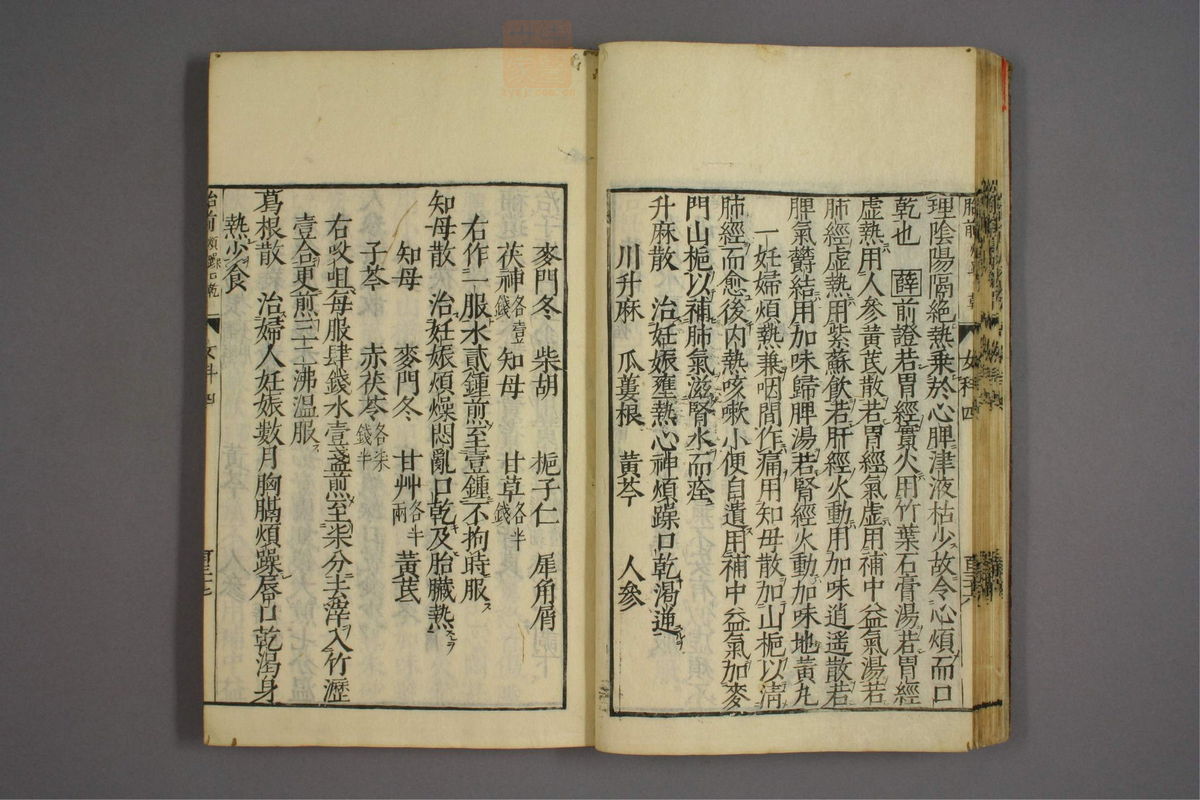 理陰陽隔絕熱乗於心脾津液枯少故令心煩而口
乾也 薛前證若胃經實火用竹葉石膏湯若胃經
虛熱用人參黃芪散若胃經氣虛用補中益氣湯若
肺經虛熱用紫蘇飲若肝經火動用加味逍遥散若
脾氣欝結用加味歸脾湯若腎經火動加味地黃丸
一妊婦煩熱兼咽間作痛用知母散加山梔以清
肺經而愈後内熱咳嗽小便自遺用補中益氣加麥
門山梔以補肺氣滋腎水而痊
升麻散 治妊娠壅熱心神煩躁口乾渴逆
川升麻 瓜蔞根 黃芩 人參
麥門冬 柴胡 梔子仁 犀角屑
茯神各壹錢 知母 甘草各半錢
右作一服水貳鍾煎至壹鍾不拘時服
知母散 治妊娠煩燥悶亂口乾及胎臟熱
知母 麥門冬 甘艸各半兩 黃芪
子芩 赤茯苓各柒錢半
右㕮咀每服肆錢水壹盞煎至柒分去滓入竹瀝
壹合更煎三二沸溫服
葛根散 治婦人妊娠數月胸膈煩躁唇口乾渴身
熱少食
女科四